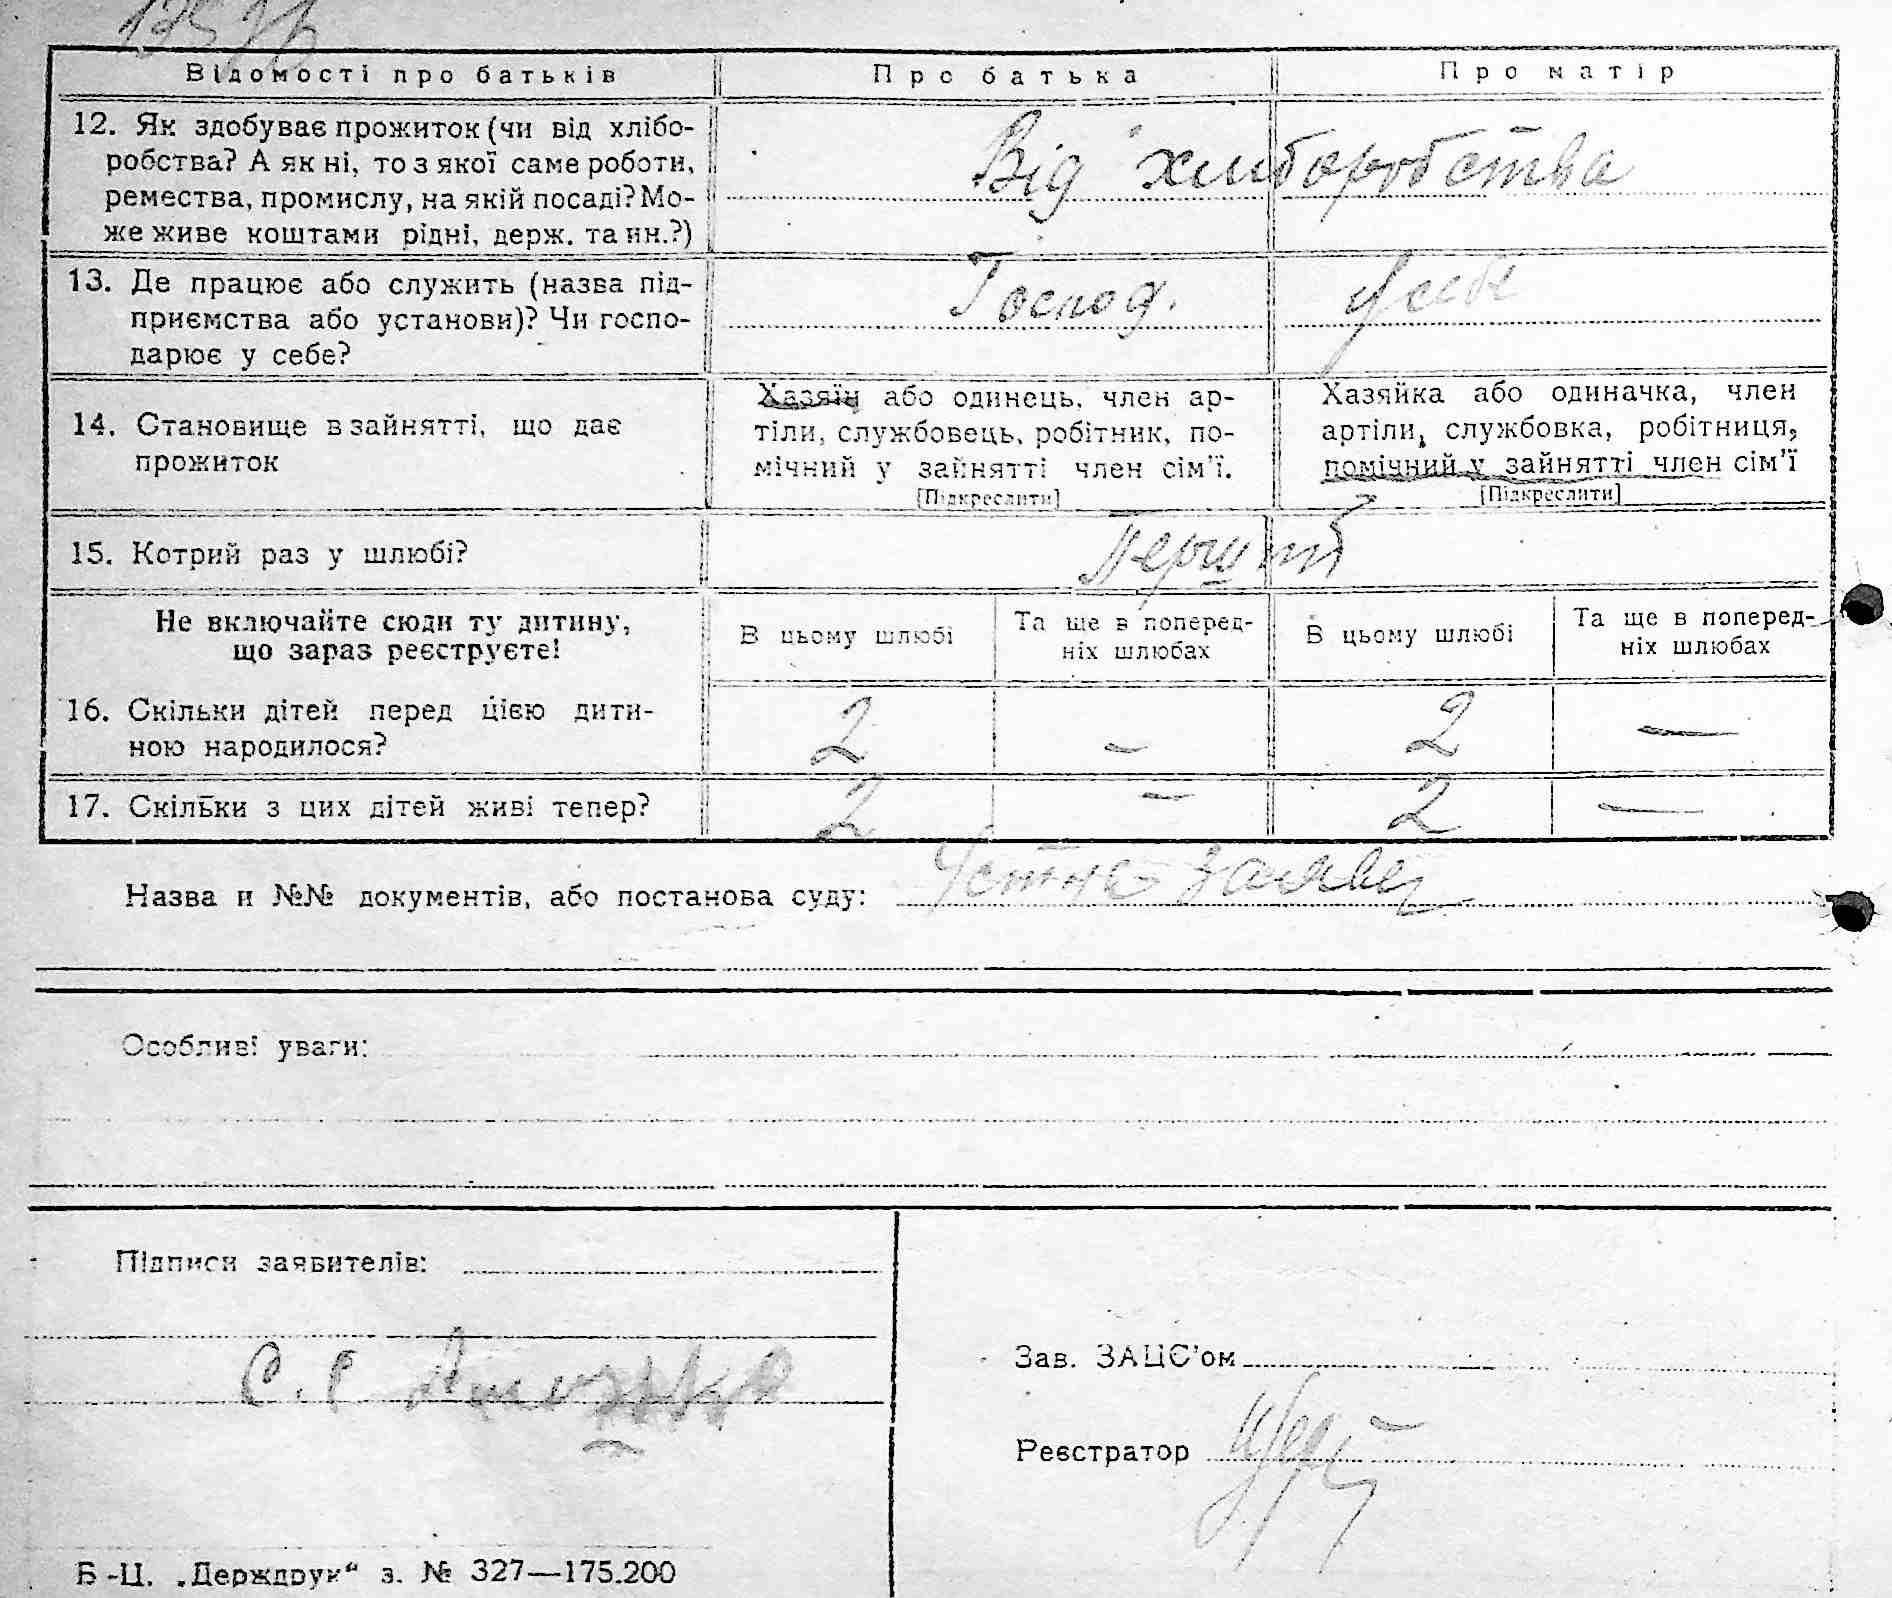 Відомості про батьків
Про батька
Про матір
12. Як здобуває прожиток (чи від хлібо-
робства? А як ні, то з якої саме роботи,
ремества, промислу, на якій посаді? Мо-
же живе коштами рідні, держ. та ин.?)
Від хліборобства
13. Де працює або служить (назва під-
приємства або установи)? Чи госпо-
дарює у себе?
Господ. у себе
14. Становище в зайнятті, що дає
прожиток
Хазяїн або одинець, член ар-
тіли, службовець, робітник, по-
мічний у зайнятті член сім'ї.
[Підкреслити]
Хазяйка або одиначка, член
артіли, службовка, робітниця,
помічний у зайнятті член сім'ї
[Підкреслити]
15. Котрий раз у шлюбі?
Перший
Не включайте сюди ту дитину,
що зараз реєструєте!
В цьому шлюбі
Та ще в поперед-
ніх шлюбах
В цьому шлюбі
Та ще в поперед-
ніх шлюбах
16. Скільки дітей перед цією дити-
ною народилося?
2 – 2 —
17. Скільки з цих дітей живі тепер?
2 – 2 —
Назва и №№ документів, або постанова суду:
Особливі уваги:
Підписи заявителів:
С. Г.
Зав. ЗАЦС'ом
Реєстратор
Б-Ц. „Держдрук“ з. № 327—175.200